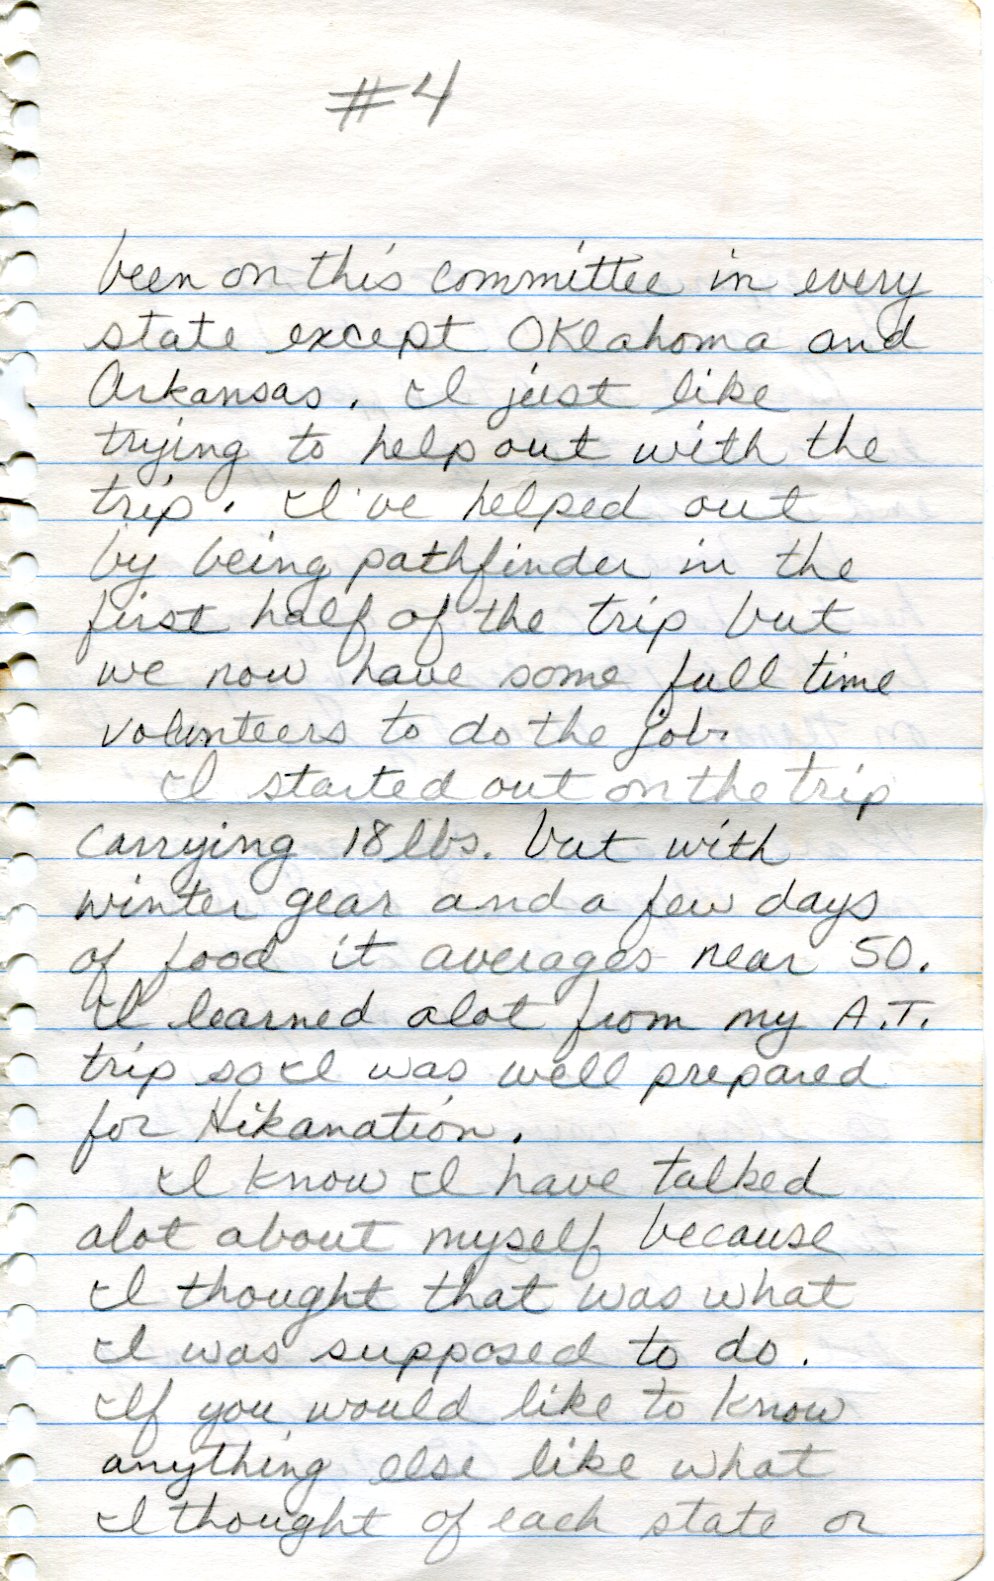 #4
been on this committee in every
state except Oklahoma and
Arkansas. I just like
trying to help out with the
trip. I've helped out
by being pathfinder in the
first half of the trip but
we now have some full time
volunteers to do the job.
I started out on the trip
carrying 18 lbs. but with
winter gear and a few days
of food it averages near 50.
I learned alot from my A.T.
trip so I was well prepared
for Hikanation.
I know I have talked
alot about myself because
I thought that was what
I was supposed to do.
If you would like to know
anything else like what
I thought of each state or